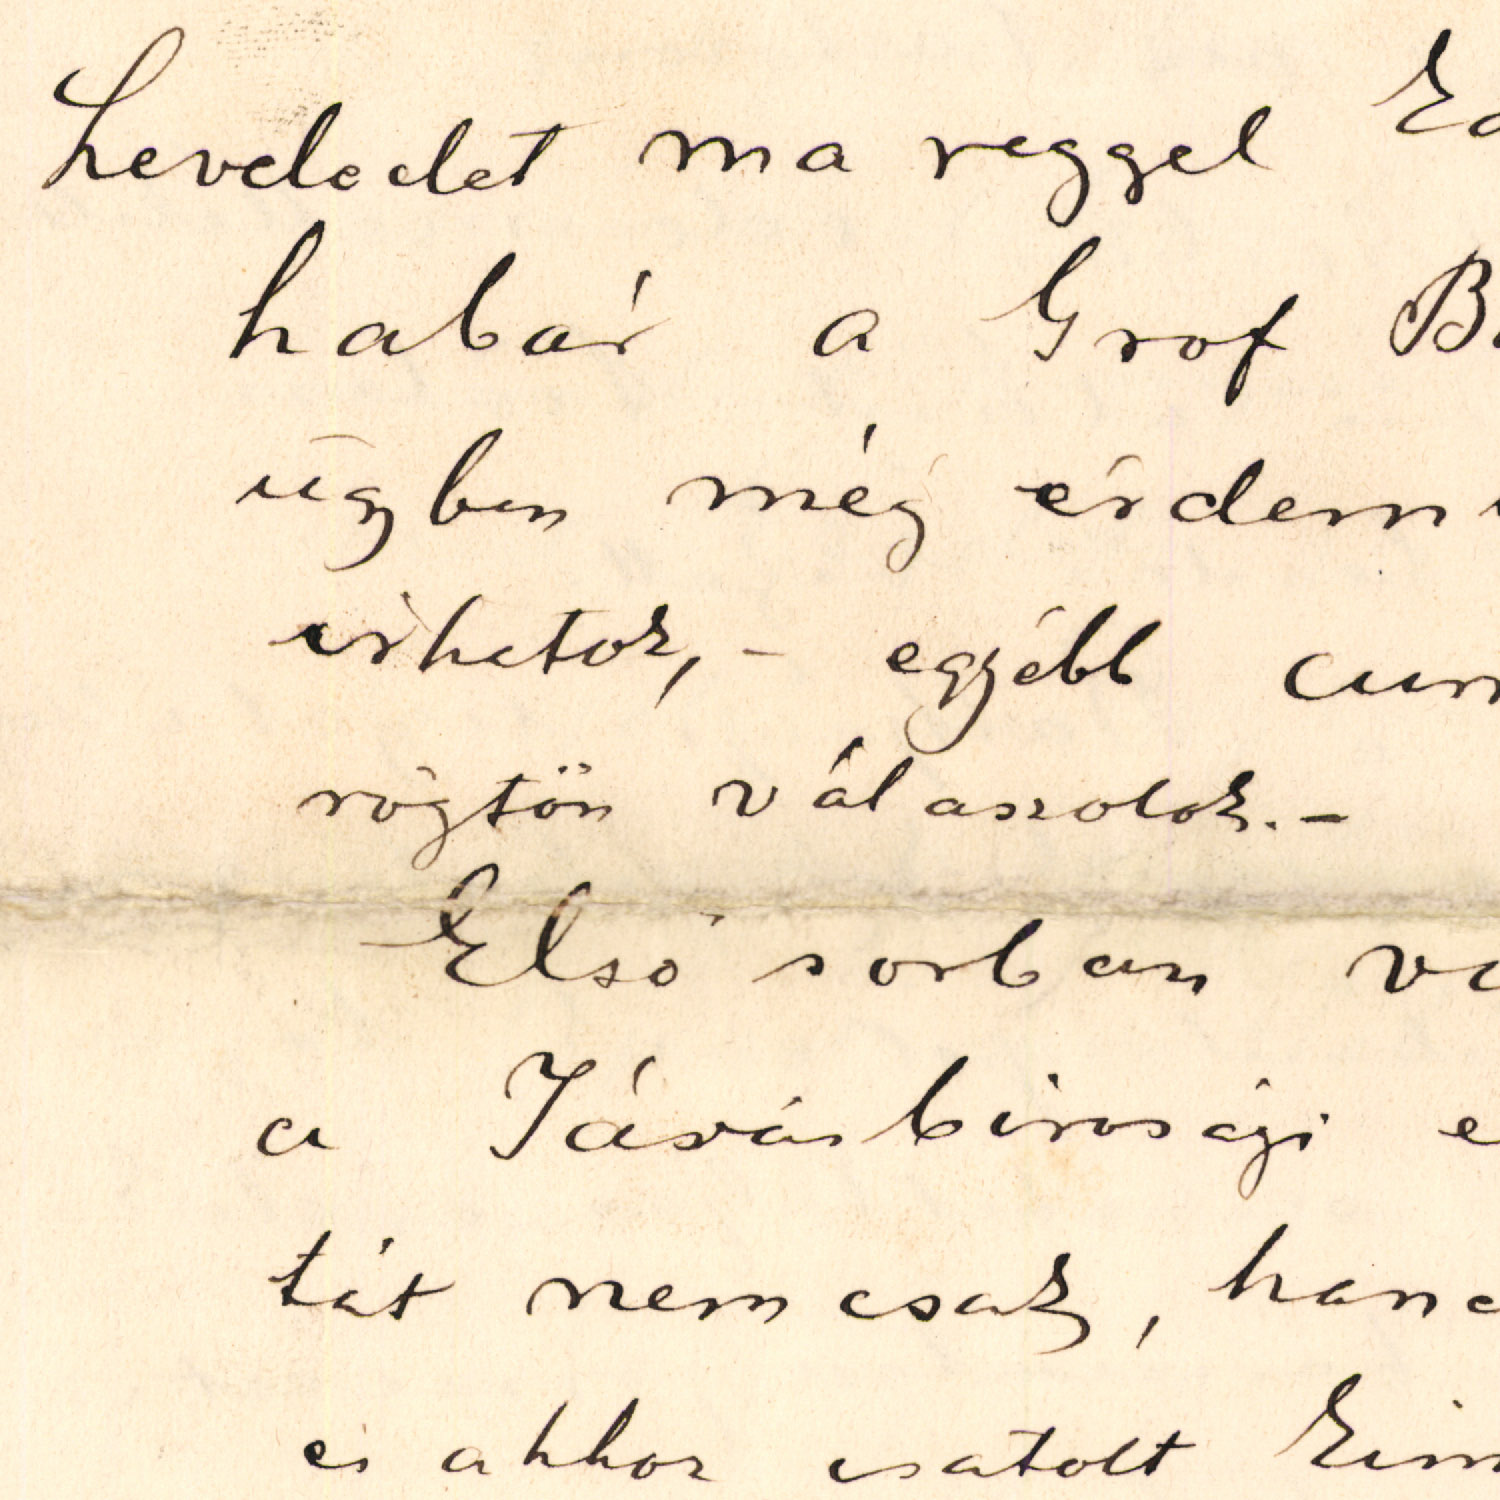 Leveledet ma reggel
habár a Grof
ügyben még érdem
irhatok, - egyébb
rögtön válaszolok. -
Első sorban
a Járásbirosági
tát nemcsak, hane
es ahhoz csatolt